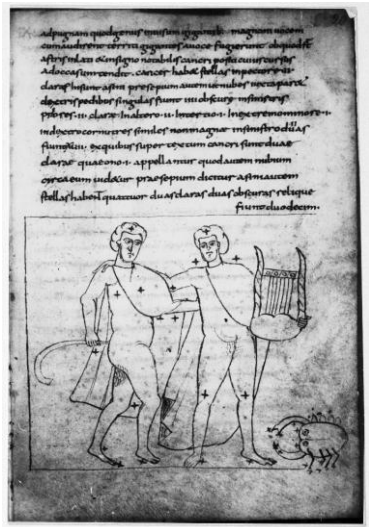 adpugnam quod genus inuisum gigantib; magnam uocem
cum audirent territi gigantes auoce fugierunt ob quod
astris inlati & insigno notabilis cancri positi cuius cursus
Adoccasum tendit. cancer habet stellas inpectore .ii.
claris hi sunt asini presepium autem ut nubes iuxta parte
dextris pedibus singulas sunt iiii obscure insinistris
.ii. clare Inaltero .ii. Intertio .i. Inextremo minore .i.
indextro cornu tres similes non magnae insinistro duas
fiunt . ex quibus super cancri sunt duae
clarae quae ono .i. appellantur quod autem nubium
circa eum uidetur praesepium dicitur asini autem
stellas habent quattuor duas claras duas obscuras relique
fiunt duodecim.